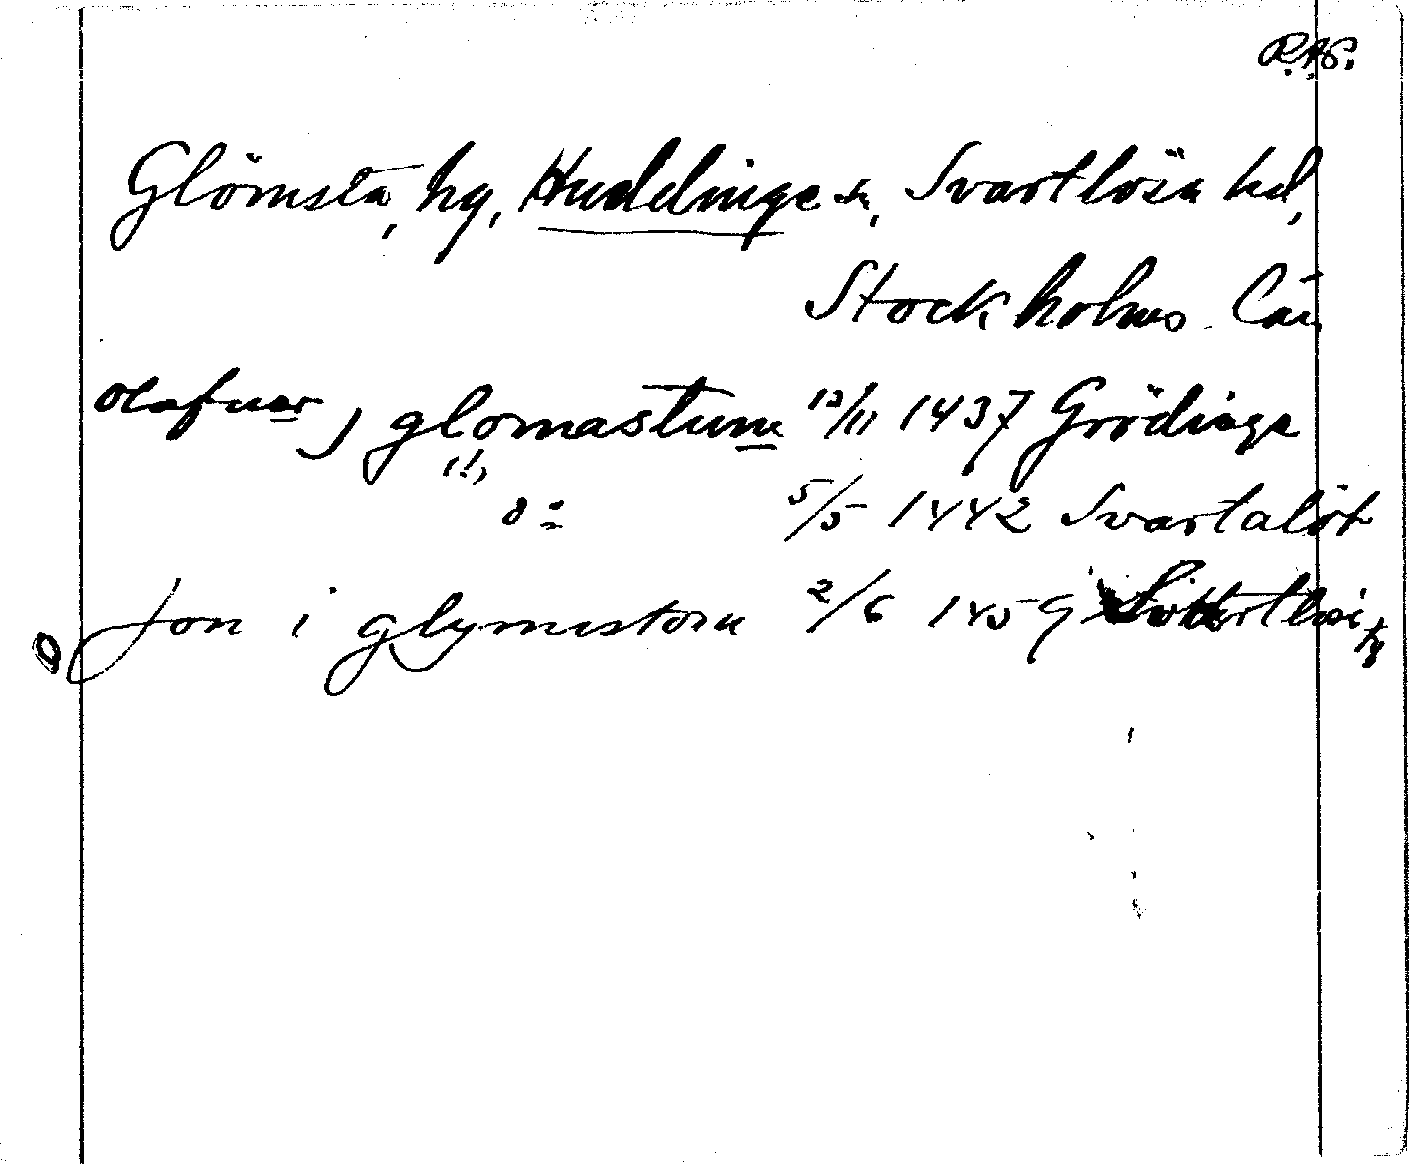 R.A.P.
Glömsta, by, Huddinge sn, Svartlösa hd,
Stockholms län
Olafuer j glomastum 12/11 1437 Grödinge
(!)
d:o 5/5 1442 Svartalöt
Jon i glymistom 2/6 1459